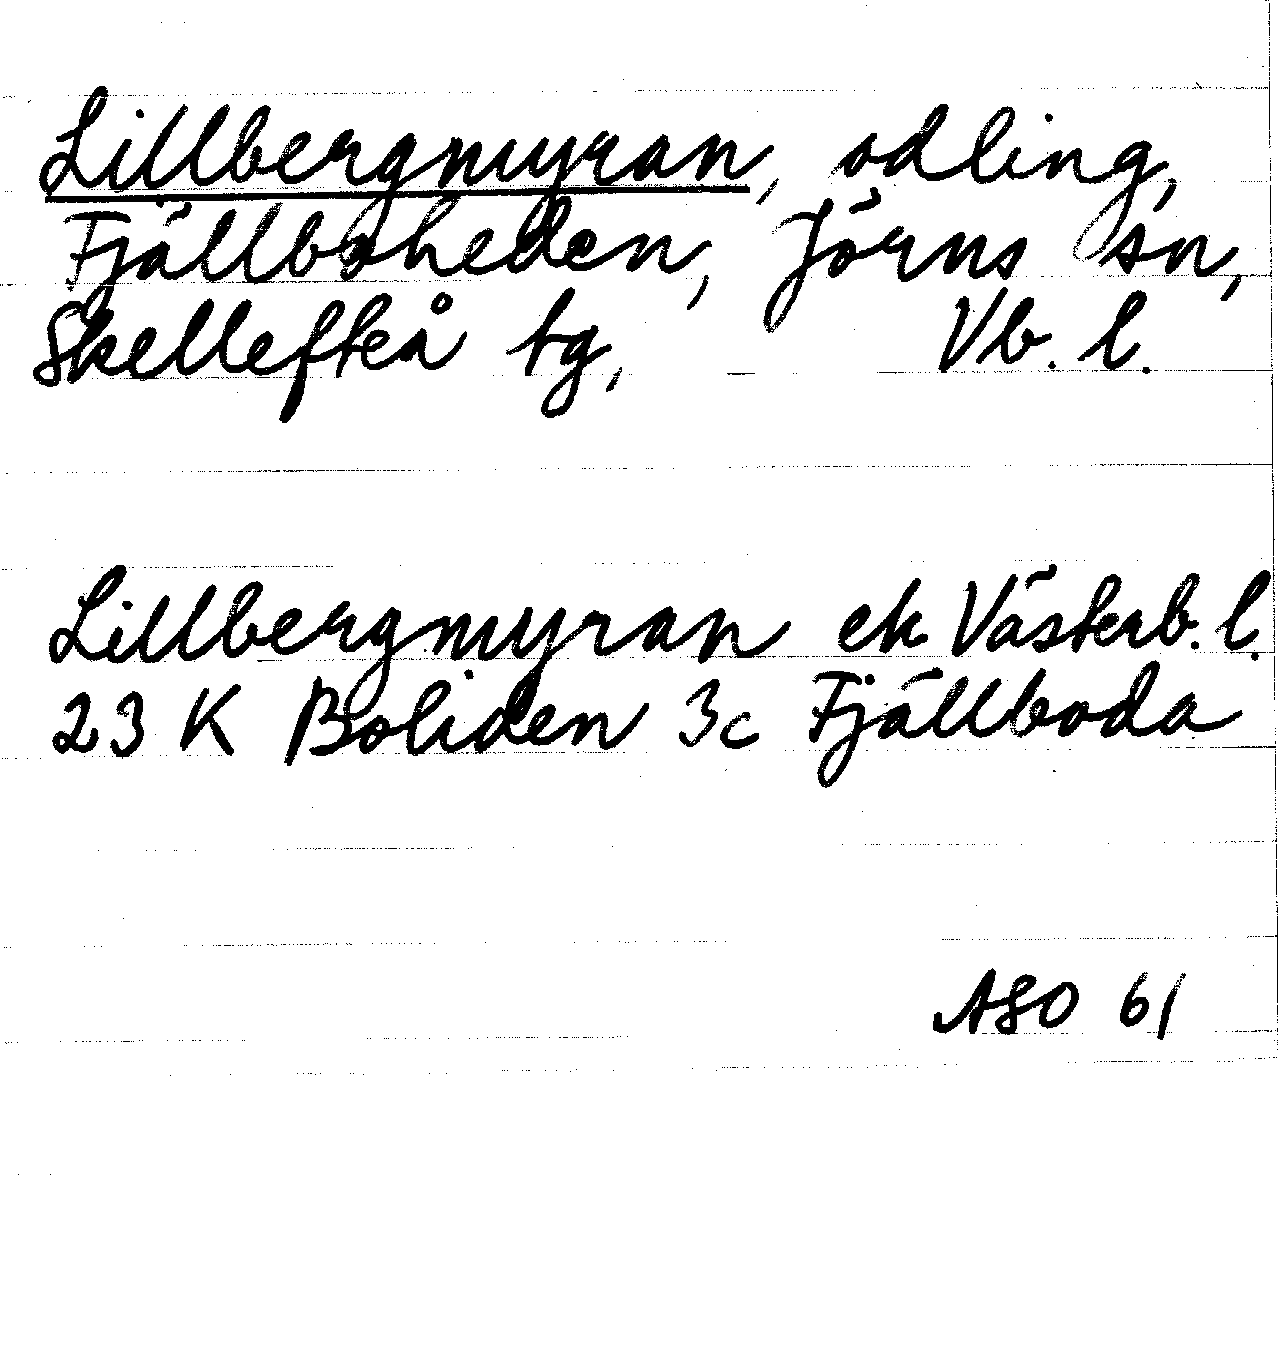 Lillbergmyran, odling,
Fjällboheden, Jörns sn,
Skellefteå tg, Vb. l.
Lillbergmyran ek Västerb. l.
23 K Boliden 3c Fjällboda
ASO 61